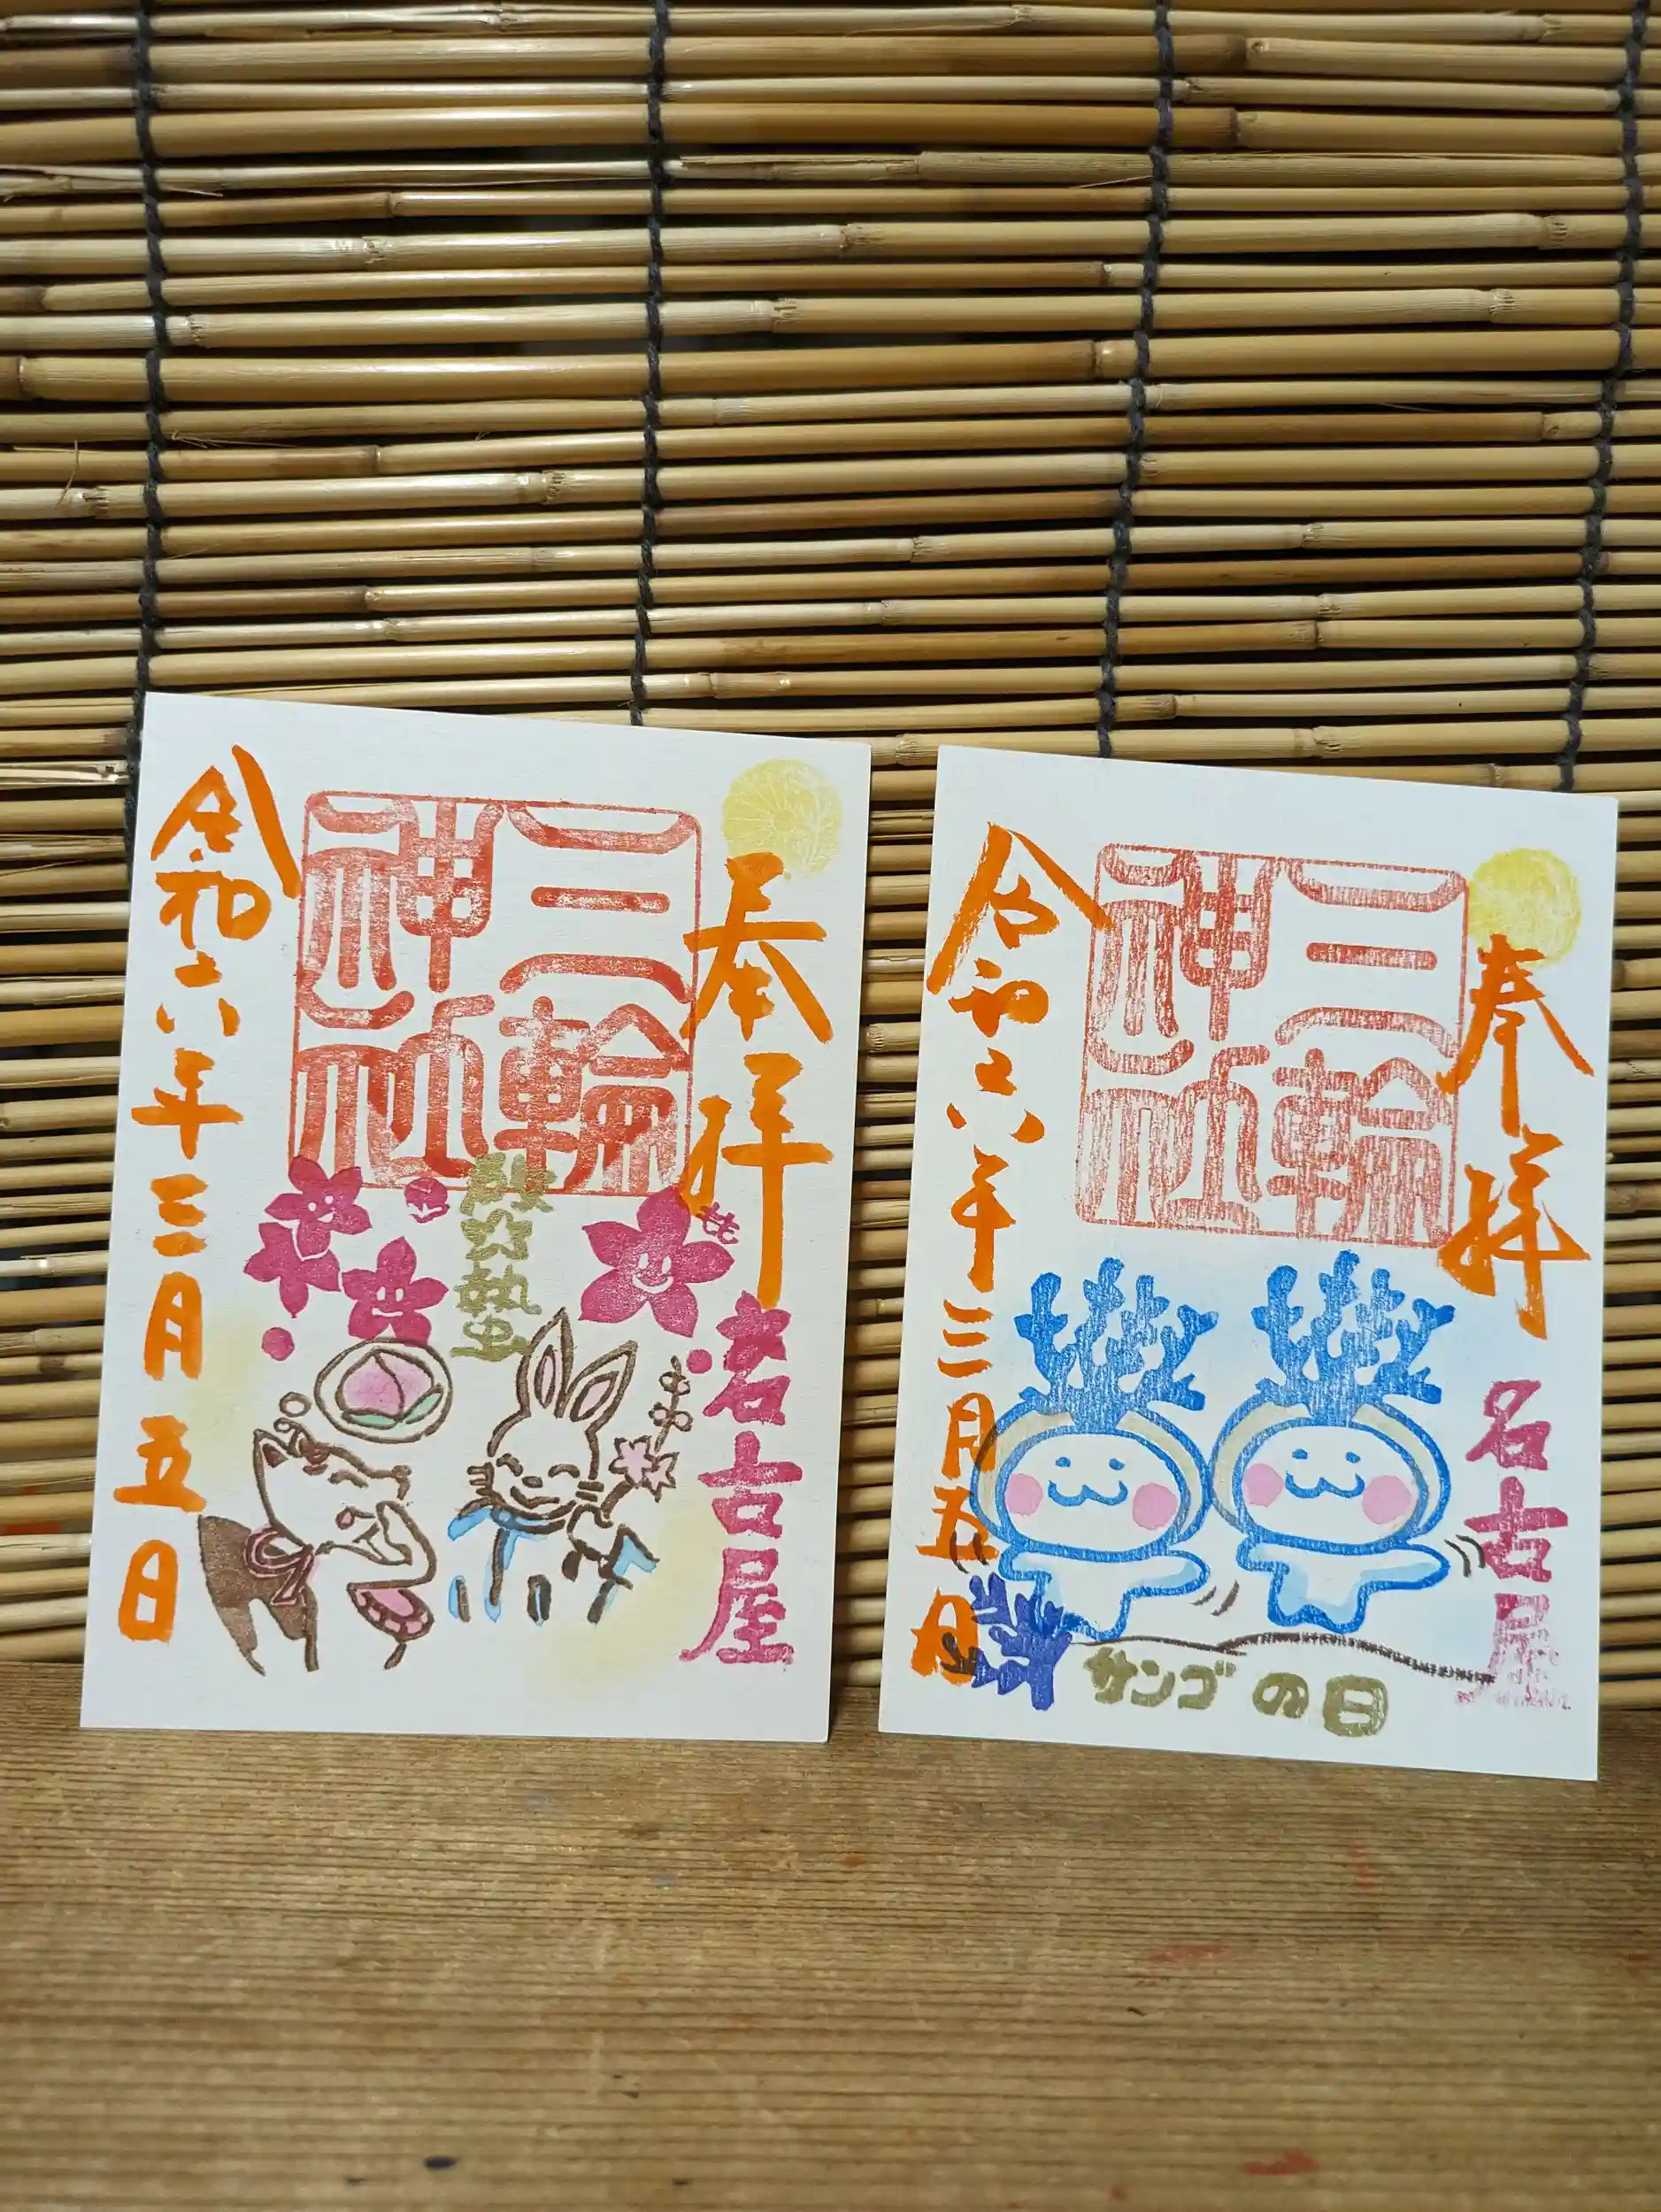 奉拝
三輪
神社
もも
名古屋
啓蟄
令和六年三月五日
奉拝
三輪
神社
名古屋
令和六年三月五日
サンゴの日